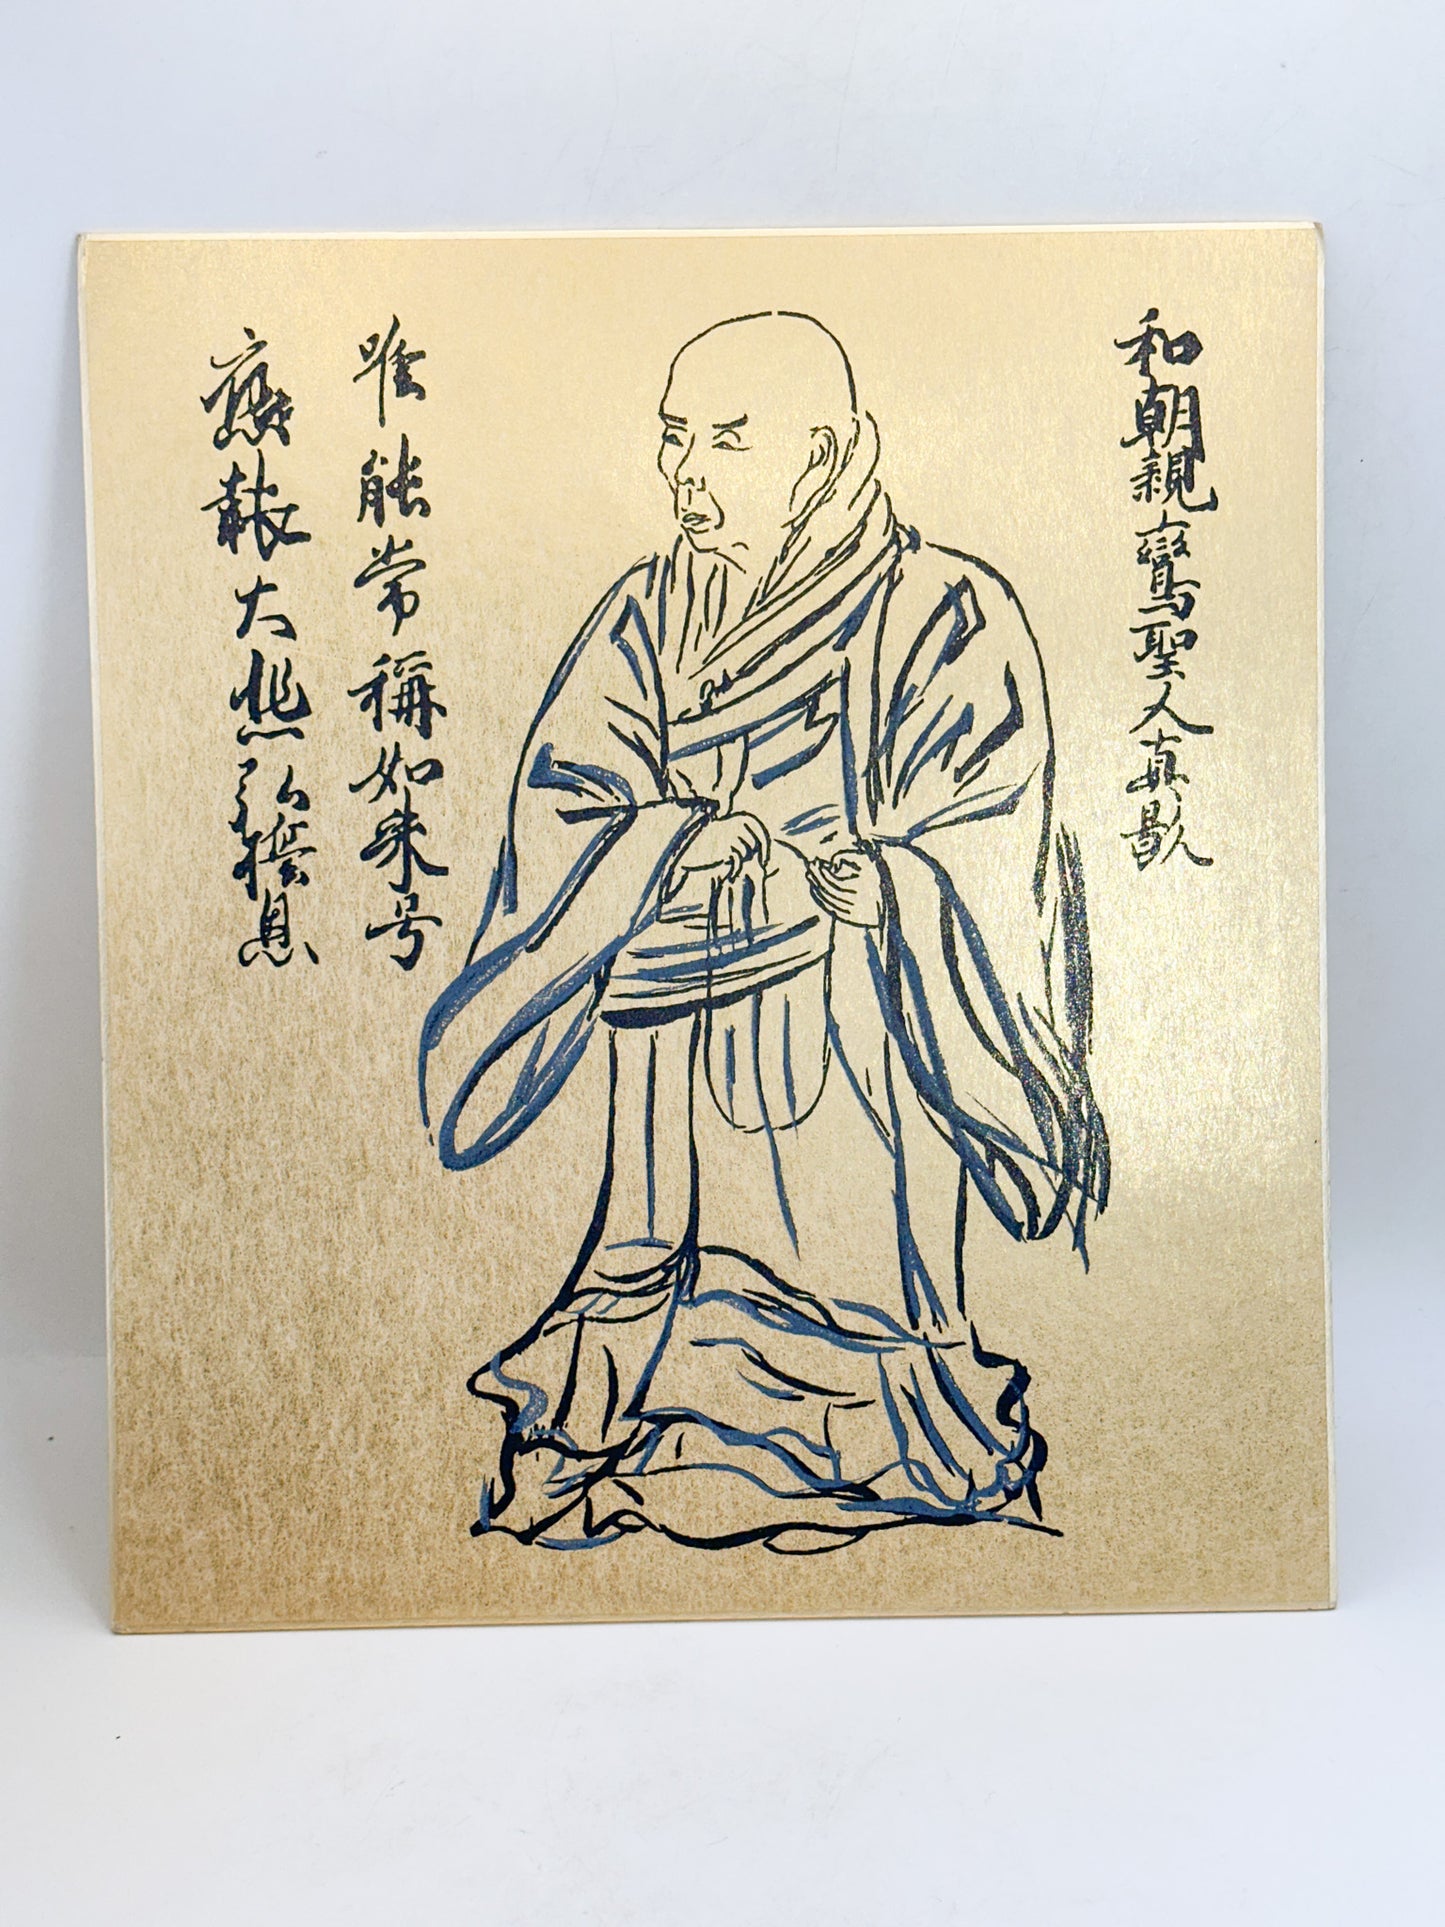 和朝親鸞聖人真影
唯能常稱如来号
應報大悲弘誓恩